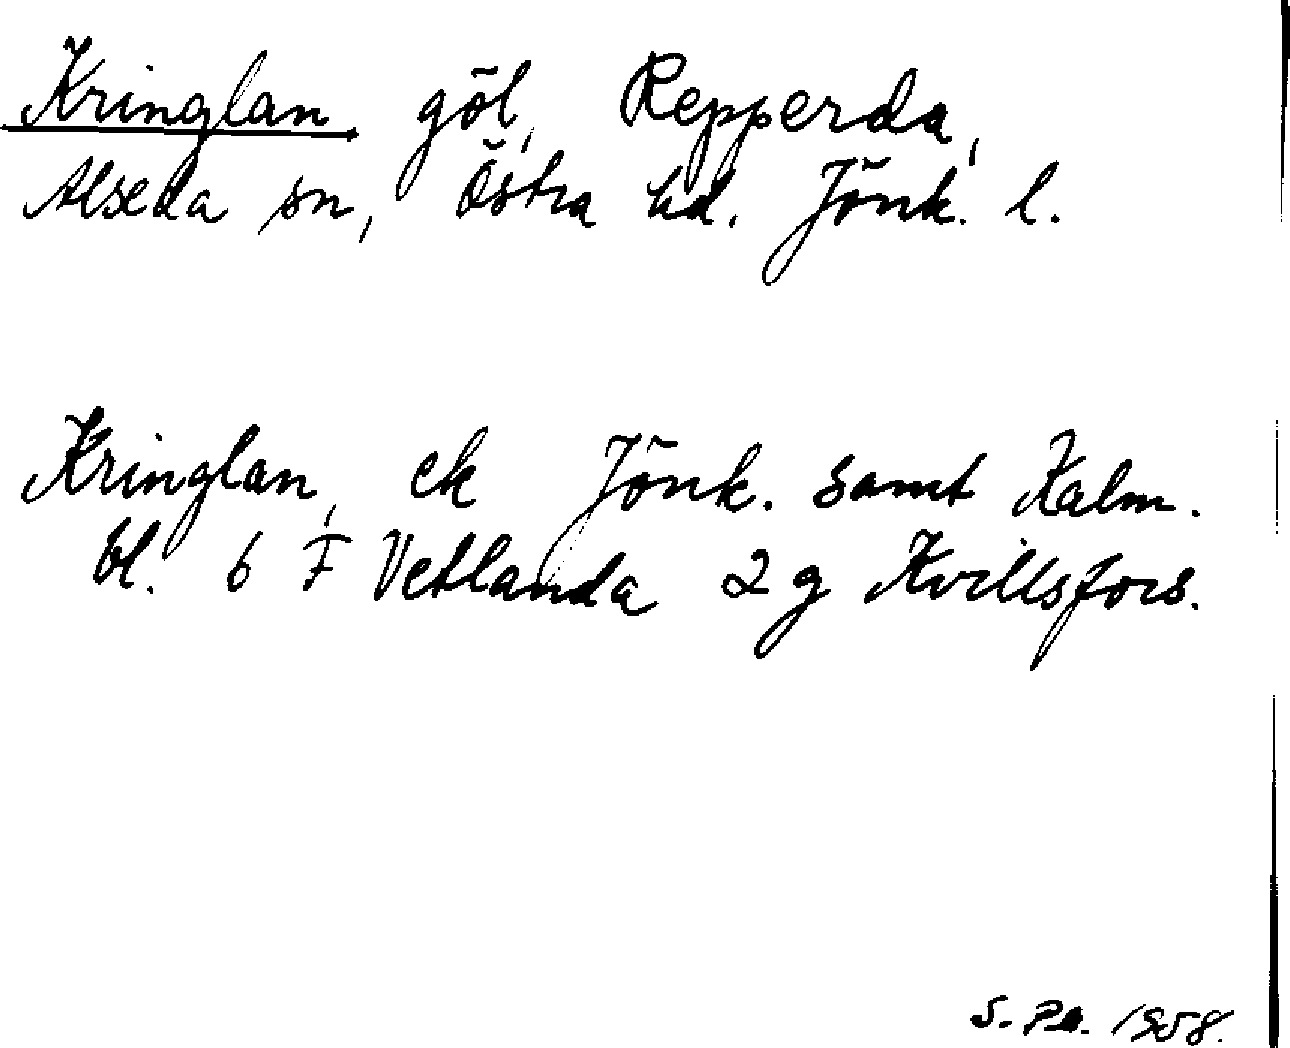 Kringlan, göl, Repperda,
Alseda sn, Östra hd. Jönk. l.
Kringlan, ek Jönk. samt Kalm.
bl. 6 F Vetlanda 2 g Kvillsfors.
S. Pn. 1958.